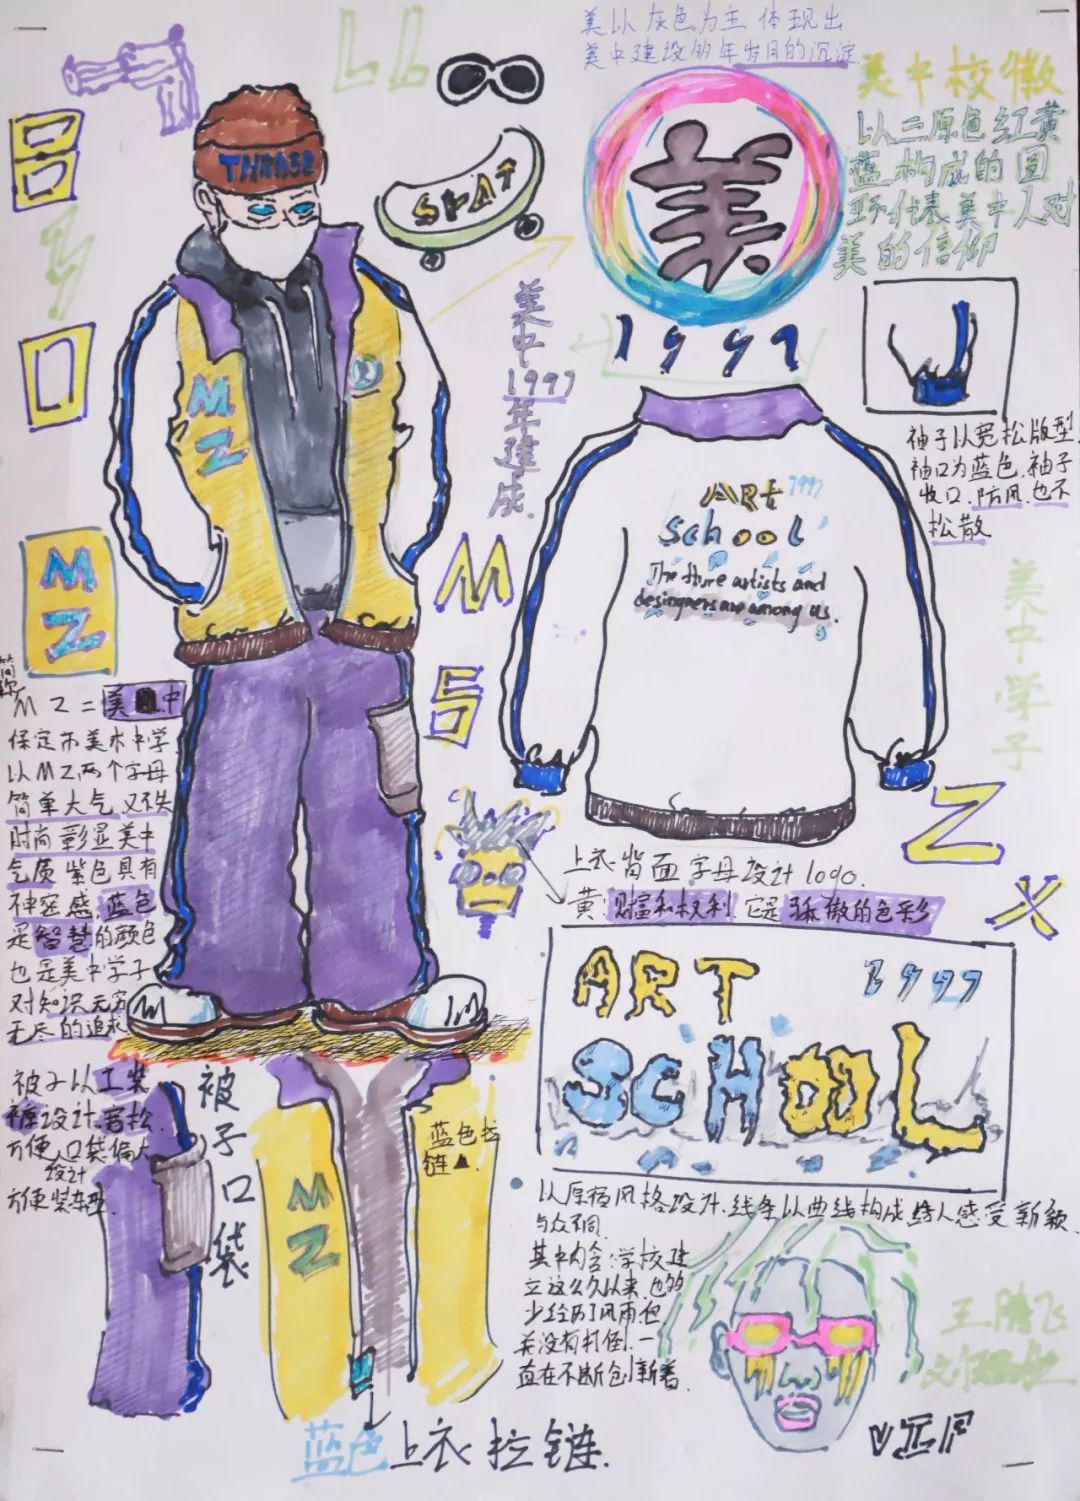 美以灰色为主 体现出
美中建设多年岁月的沉淀
美中校徽
以三原色红黄
蓝构成的圆
环代表美中人对
美的信仰
THRASE
SKAT
美
1997
美中
1997
年建
成.
MZ
袖子以宽松版型.
袖口为蓝色.袖子
收口.防风.也不
松散
ART 1997
School
The ture artists and
designers are among us.
美中学子
MZ
M
S
Z
X
简称
MZ=美中
保定市美术中学.
以MZ两个字母
简单大气又不失
时尚 彰显美中
气质 紫色具有
神密感.蓝色
是智慧的颜色
也是美中学子
对知识无穷
无尽的追求
上衣背面字母设计logo.
黄:财富和权利.它是骄傲的色彩
ART 1997
SCHOOL
被子以工装
裤设计.宽松.
方便.口袋偏大
设计
方便装东西.
被子口袋
MZ
蓝色拉
链▲.
以原宿风格设计.线条以曲线构成给人感受新颖.
与众不同.
其中内含:学校建
立这么久以来.也的
少经历了风雨但.
并没有打倒.一
直在不断创新着.
王腾飞
VIF
蓝色上衣拉链.